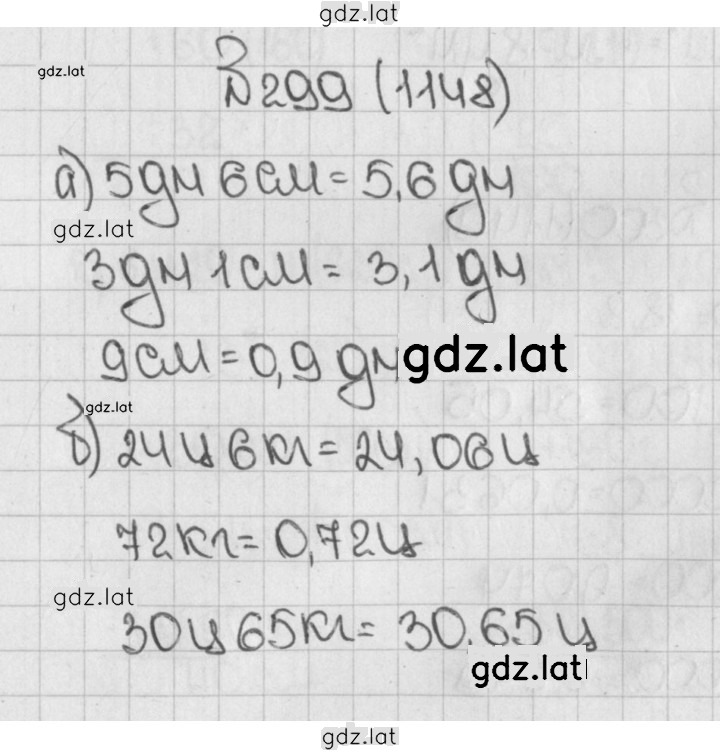 gdz.lat
gdz.lat
№299 (1148)
а) 5дм 6см = 5,6 дм
gdz.lat
3дм 1см = 3,1 дм
9см = 0,9 дм gdz.lat
gdz.lat
б) 24ц 6кг = 24,06ц
72кг = 0,72ц
gdz.lat
30ц 65кг = 30,65 ц
gdz.lat
gdz.lat